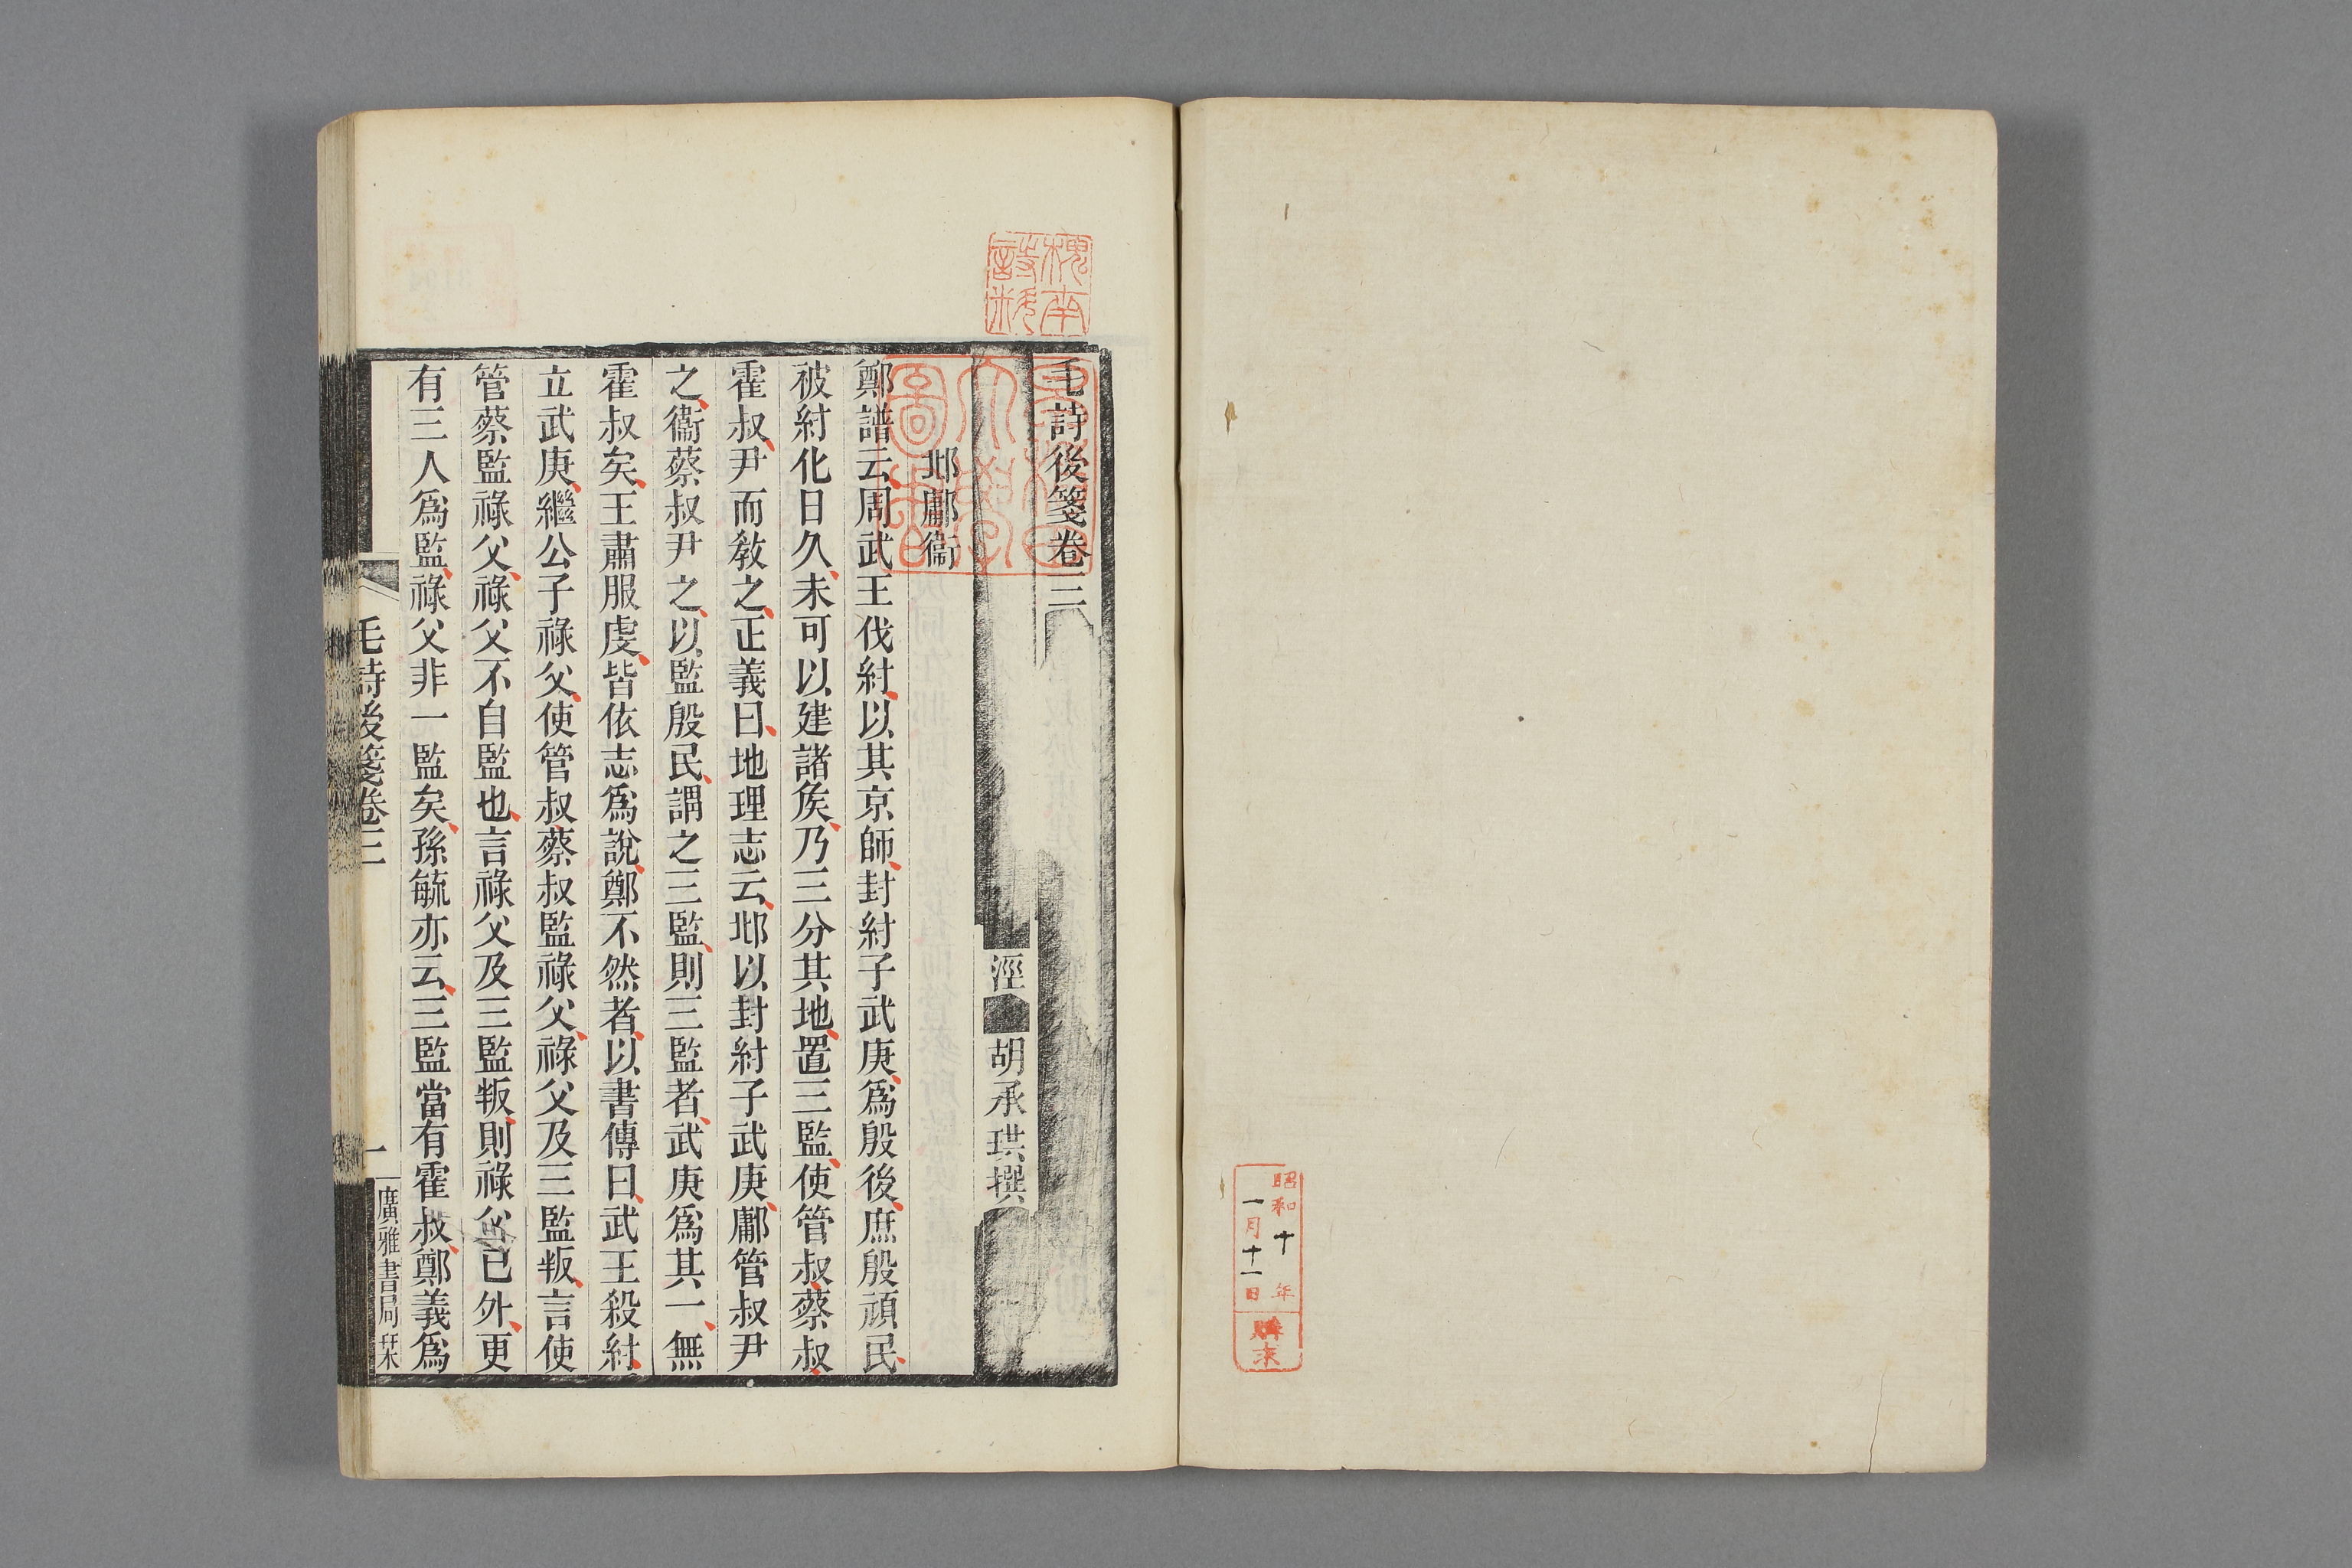 昭和十年
一月十一日
購求
毛詩後箋卷三
涇 胡承珙撰
邶鄘衞
鄭譜云周武王伐紂以其京師封紂子武庚爲殷後庶殷頑民
被紂化日久未可以建諸矦乃三分其地置三監使管叔蔡叔
霍叔尹而敎之正義曰地理志云邶以封紂子武庚鄘管叔尹
之衞蔡叔尹之以監殷民謂之三監則三監者武庚爲其一無
霍叔矣王肅服虔皆依志爲說鄭不然者以書傳曰武王殺紂
立武庚繼公子祿父使管叔蔡叔監祿父祿父及三監叛言使
管蔡監祿父祿父不自監也言祿父及三監叛則祿父已外更
有三人爲監祿父非一監矣孫毓亦云三監當有霍叔鄭義爲
毛詩後箋卷三
一
廣雅書局栞
槐南詩料
早稻田大學圖書